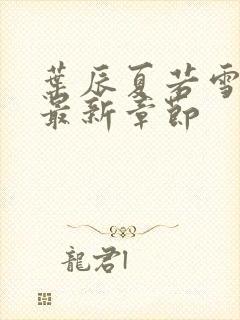 葉辰夏若雪
最新章節
龍君1